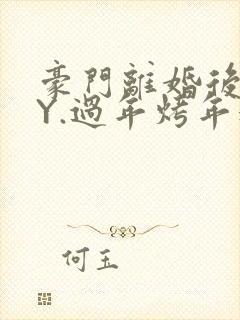 豪門離婚後
Y.過年烤年
何玉